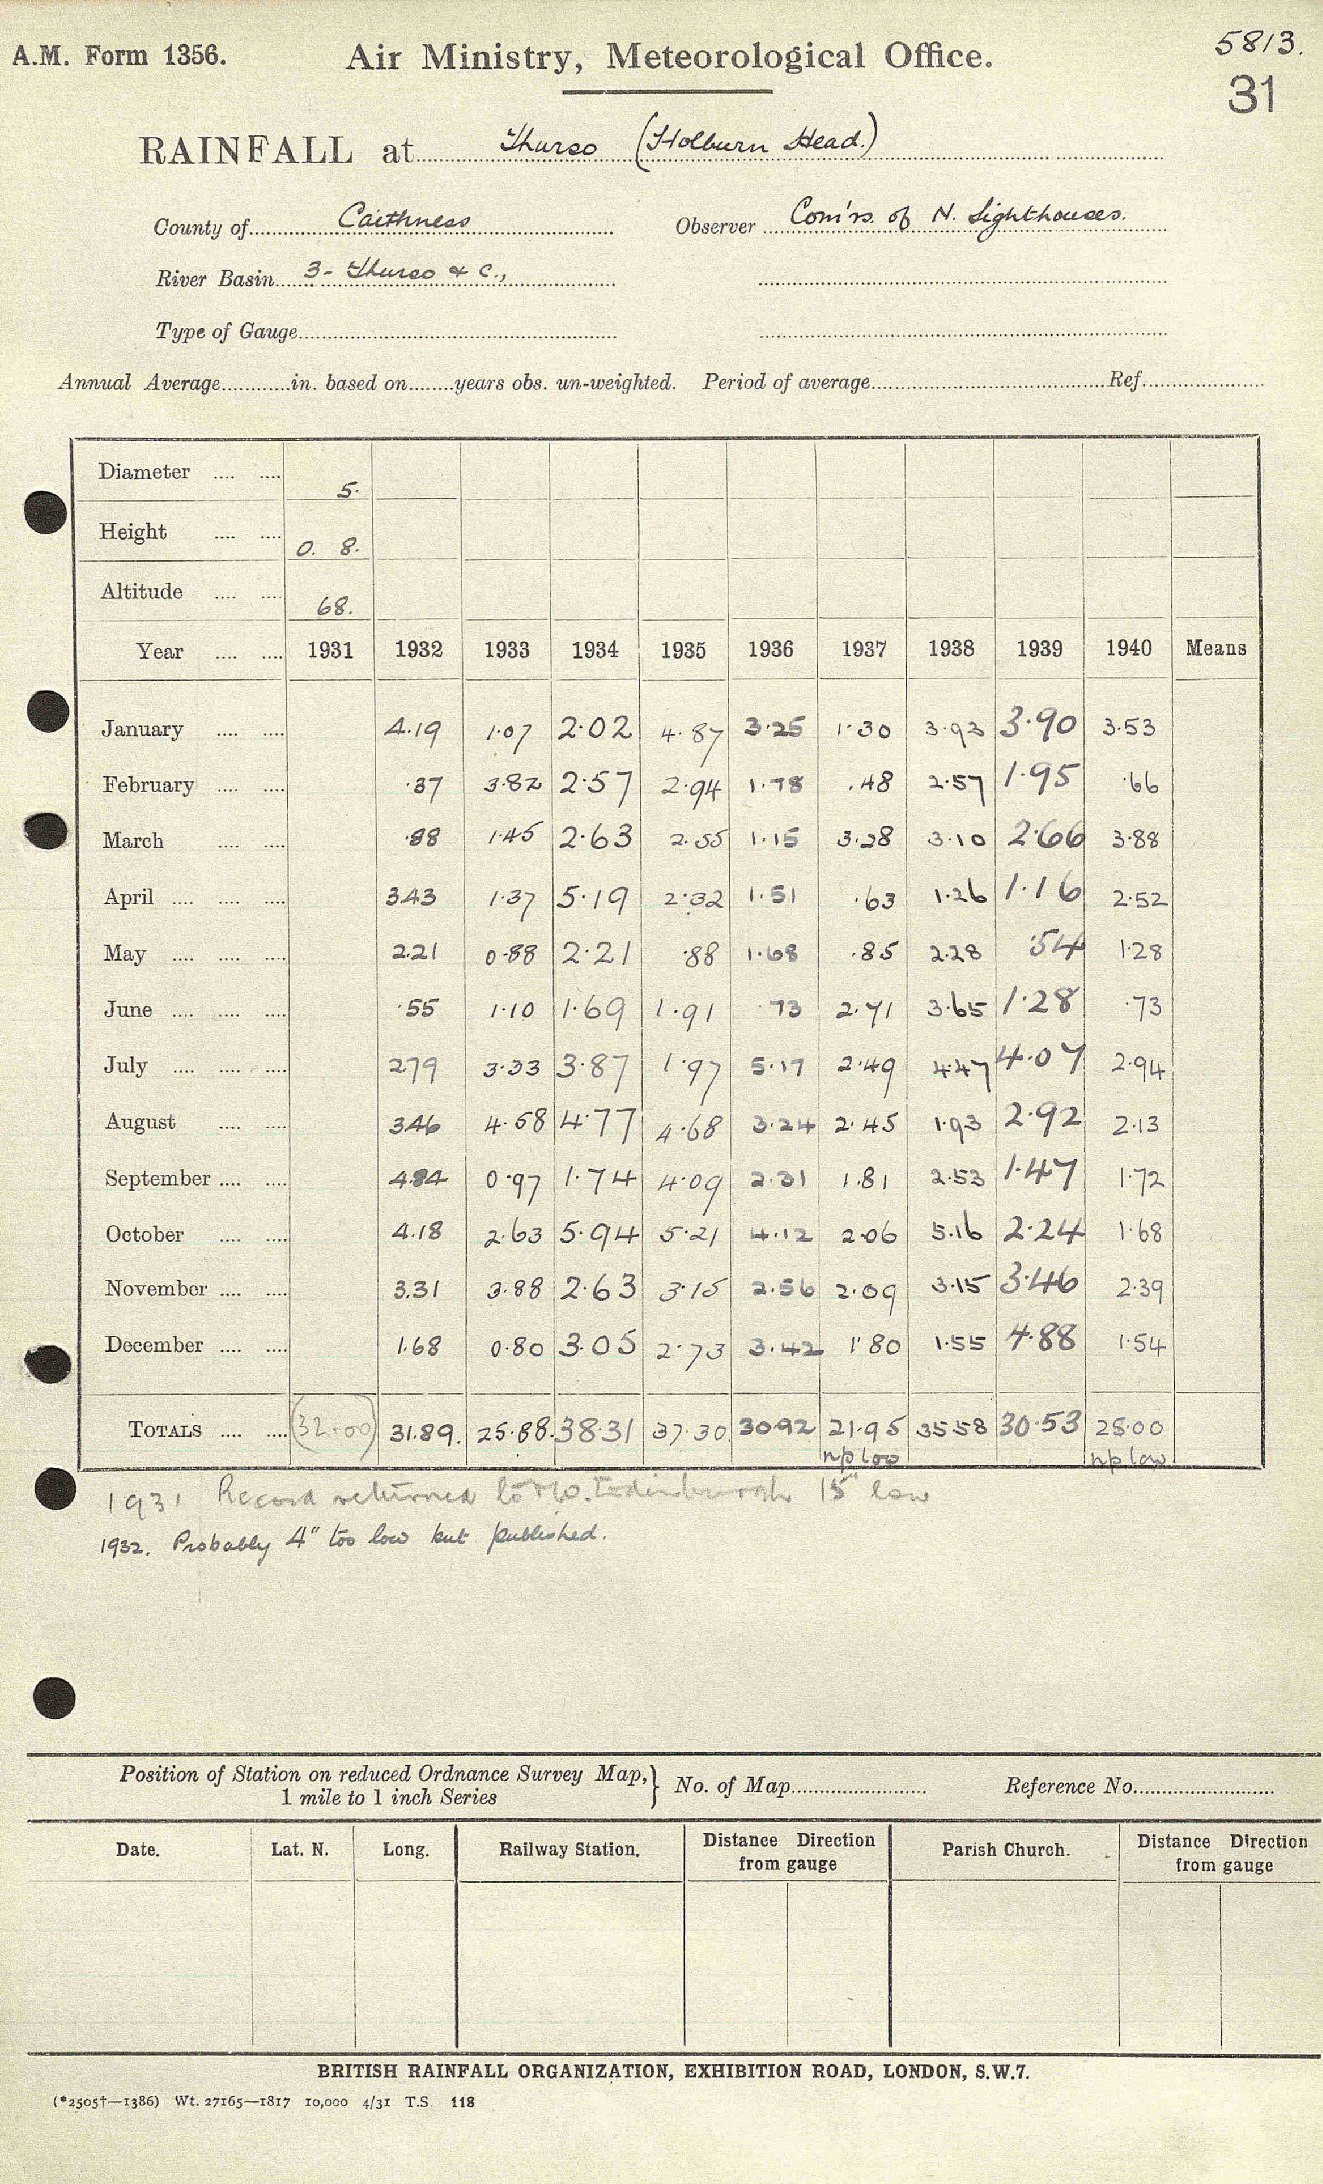 5813.
A.M. Form 1356. Air Ministry, Meteorological Office.
31
RAINFALL at Thurso (Holburn Head.)
County of Caithness Observer Com'rs. of N. Lighthouses.
River Basin 3 - Thurso & c.,
Type of Gauge
Annual Average in. based on years obs. un-weighted. Period of average Ref
Diameter 5.
Height 0. 8.
Altitude 68.
Year 1931 1932 1933 1934 1935 1936 1937 1938 1939 1940 Means
January 4.19 1.07 2.02 4.87 3.25 1.30 3.93 3.90 3.53
February .37 3.82 2.57 2.94 1.78 .48 2.57 1.95 .66
March .88 1.45 2.63 2.55 1.15 3.28 3.10 2.66 3.88
April 3.43 1.37 5.19 2.32 1.51 .63 1.26 1.16 2.52
May 2.21 0.88 2.21 .88 1.68 .85 2.28 .54 1.28
June .55 1.10 1.69 1.91 .73 2.71 3.65 1.28 .73
July 2.79 3.33 3.87 1.97 5.17 2.49 4.47 4.07 2.94
August 3.46 4.58 4.77 4.68 3.24 2.45 1.93 2.92 2.13
September 4.84 0.97 1.74 4.09 2.31 1.81 2.53 1.47 1.72
October 4.18 2.63 5.94 5.21 4.12 2.06 5.16 2.24 1.68
November 3.31 3.88 2.63 3.15 2.56 2.09 3.15 3.46 2.39
December 1.68 0.80 3.05 2.73 3.42 1.80 1.55 4.88 1.54
TOTALS (32.00) 31.89. 25.88. 38.31 37.30 30.92 21.95 35.58 30.53 25.00
np too np low
1931 Record returned to M.O. Edinburgh 15" low
1932. Probably 4" too low but published.
Position of Station on reduced Ordnance Survey Map, } No. of Map Reference No.
1 mile to 1 inch Series
Date. Lat. N. Long. Railway Station. Distance Direction from gauge Parish Church. Distance Direction from gauge
BRITISH RAINFALL ORGANIZATION, EXHIBITION ROAD, LONDON, S.W.7.
(*2505†—1386) Wt. 27165—1817 10,000 4/31 T.S. 118